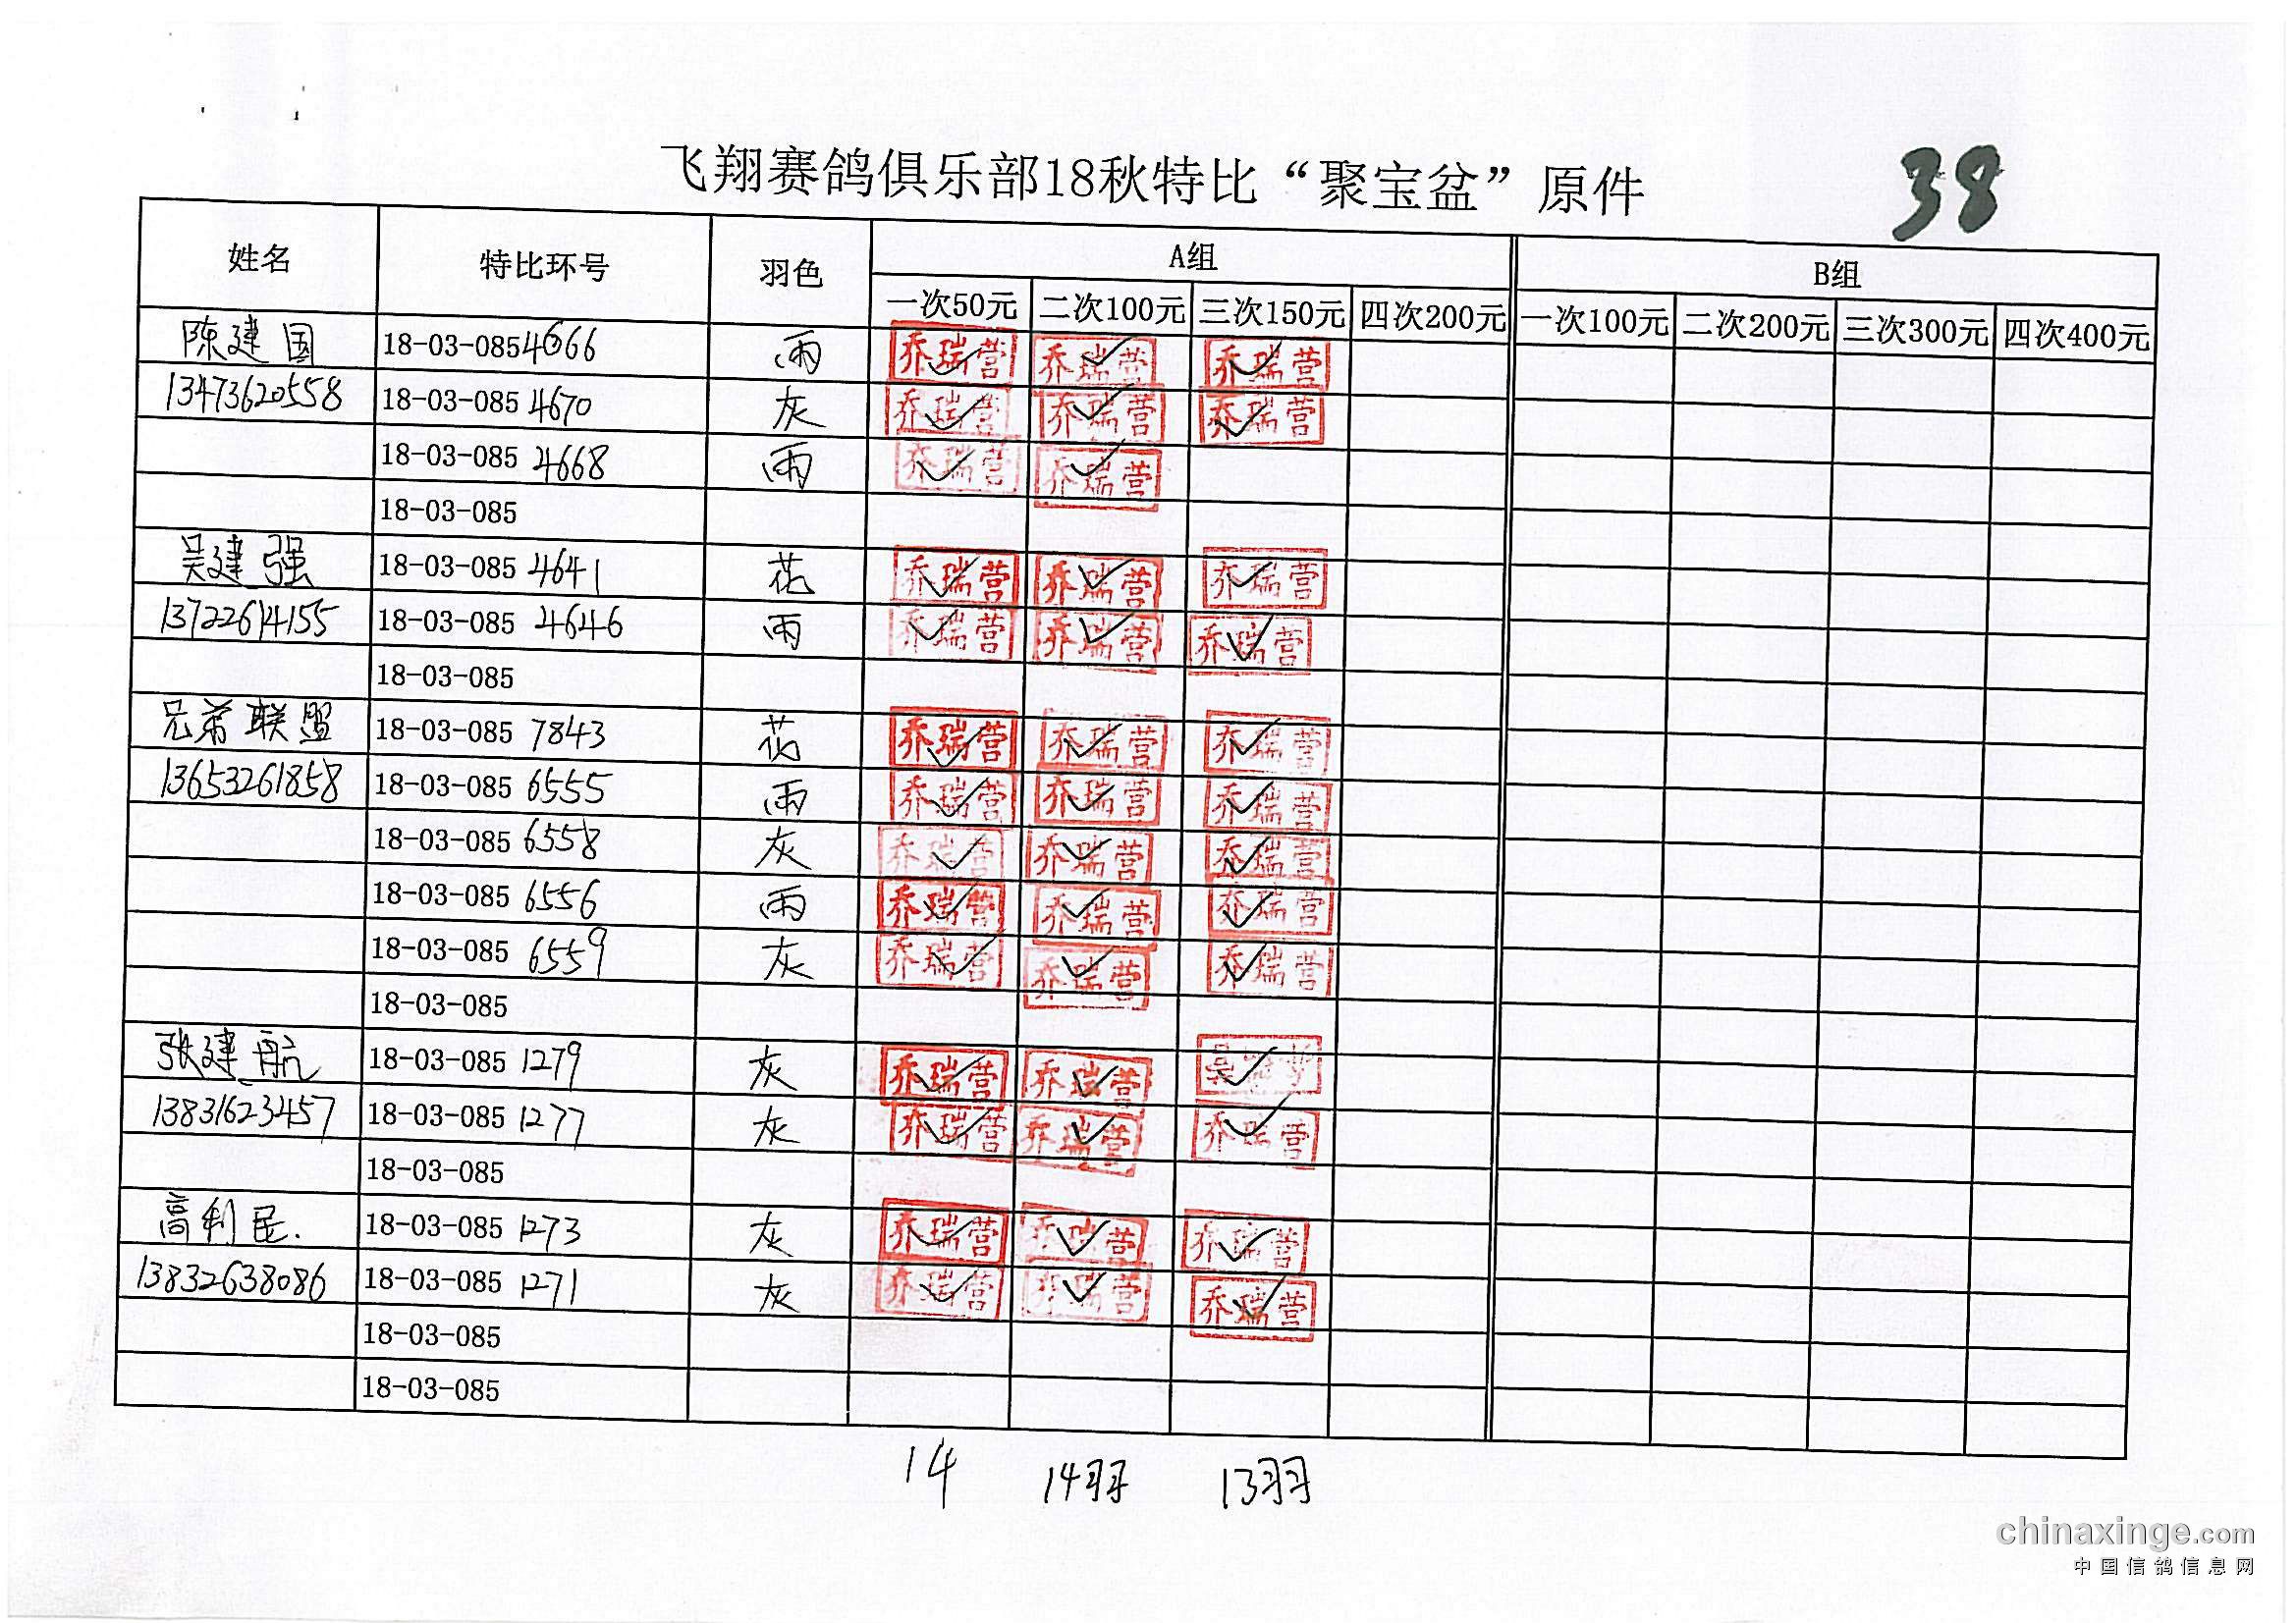 飞翔赛鸽俱乐部18秋特比“聚宝盆”原件 38
姓名 特比环号 羽色 A组 B组
一次50元 二次100元 三次150元 四次200元 一次100元 二次200元 三次300元 四次400元
陈建国 18-03-085 4666 雨 乔瑞营 乔瑞营 乔瑞营
13473620558 18-03-085 4670 灰 乔瑞营 乔瑞营 乔瑞营
18-03-085 4668 雨 乔瑞营 乔瑞营
18-03-085
吴建强 18-03-085 4641 花 乔瑞营 乔瑞营 乔瑞营
13722614155 18-03-085 4646 雨 乔瑞营 乔瑞营 乔瑞营
18-03-085
兄弟联盟 18-03-085 7843 花 乔瑞营 乔瑞营 乔瑞营
13653261858 18-03-085 6555 雨 乔瑞营 乔瑞营 乔瑞营
18-03-085 6558 灰 乔瑞营 乔瑞营 乔瑞营
18-03-085 6556 雨 乔瑞营 乔瑞营 乔瑞营
18-03-085 6559 灰 乔瑞营 乔瑞营 乔瑞营
18-03-085
张建航 18-03-085 1279 灰 乔瑞营 乔瑞营 吴
13831623457 18-03-085 1277 灰 乔瑞营 乔瑞营 乔瑞营
18-03-085
高利民. 18-03-085 1273 灰 乔瑞营 乔瑞营 乔瑞营
13832638086 18-03-085 1271 灰 乔瑞营 乔瑞营 乔瑞营
18-03-085
18-03-085
14 14羽 13羽
chinaxinge.com
中国信鸽信息网